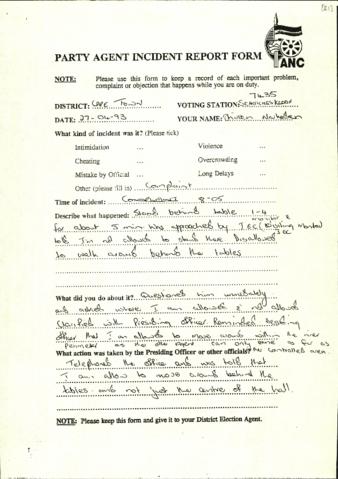 [21]
ANC
PARTY AGENT INCIDENT REPORT FORM
NOTE: Please use this form to keep a record of each important problem,
complaint or objection that happens while you are on duty.
7435
DISTRICT: CAPE TOWN VOTING STATION:
DATE: 27-04-93 YOUR NAME:
What kind of incident was it? (Please tick)
Intimidation ... Violence ...
Cheating ... Overcrowding ...
Mistake by Official ... Long Delays ...
Other (please fill in) Complaint
Time of incident: Commenced 8-05
Describe what happened: Stand behind table 1-4
for about 5 min was approached by I.E.C
told I'm not allowed to stand there
to walk around behind the tables
What did you do about it? Questioned him immediately
and asked where allowed & not allowed
Clarified with Presiding officer
other that I to move around within the inner
Perimeter as the can only come as far as
What action was taken by the Presiding Officer or other officials? the controlled area.
Telephoned the office and was told that
I am allow to move around behind the
tables and not just the centre of the hall.
NOTE: Please keep this form and give it to your District Election Agent.